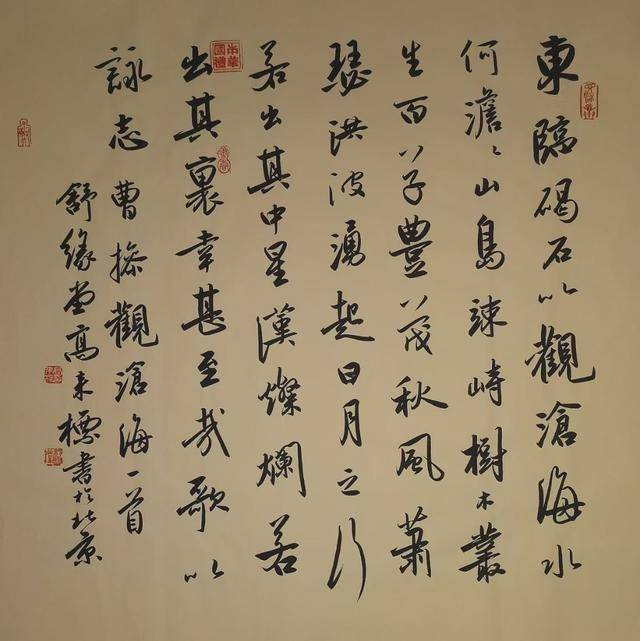 東臨碣石以觀滄海水
何澹〻山島竦峙樹木叢
生百草豐茂秋風蕭
瑟洪波湧起日月之行
若出其中星漢燦爛若
出其裏幸甚至哉歌以
詠志 曹操觀滄海一首
舒緣堂高来標書於北京